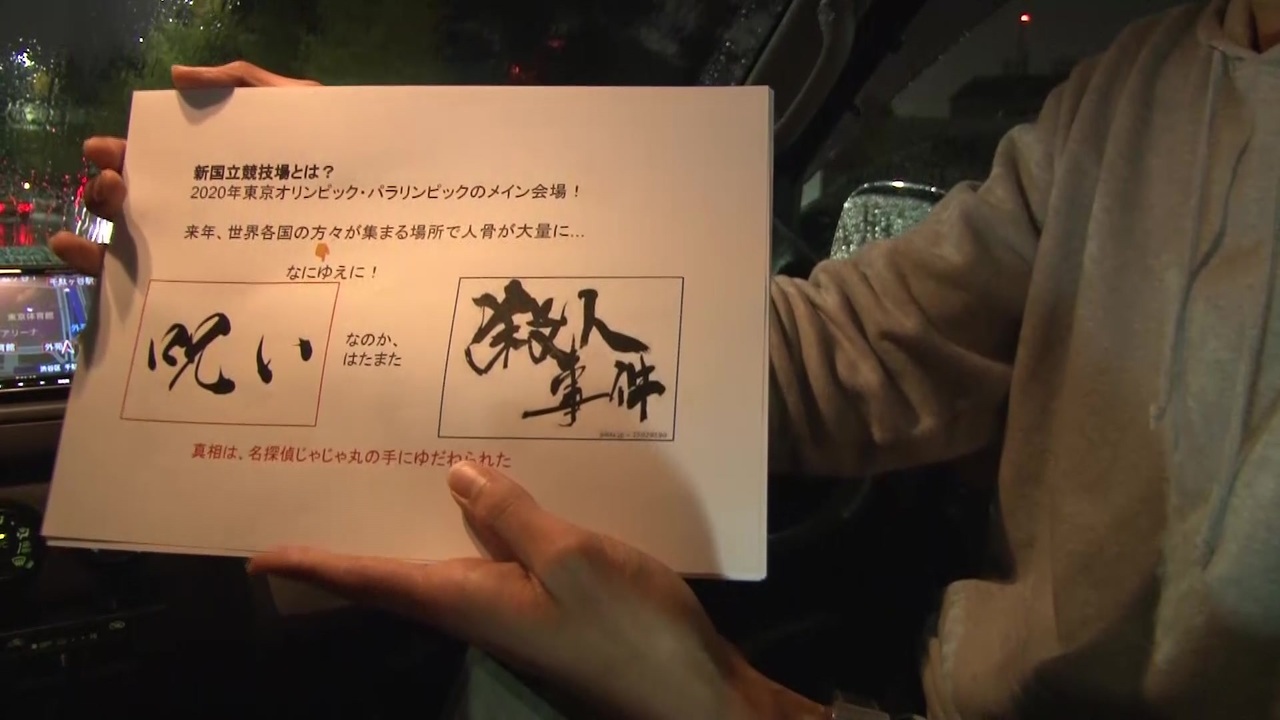 新国立競技場とは？
2020年東京オリンピック・パラリンピックのメイン会場！
来年、世界各国の方々が集まる場所で人骨が大量に…
なにゆえに！
呪い
なのか、
はたまた
殺人
事件
真相は、名探偵じゃじゃ丸の手にゆだねられた
千駄ヶ谷駅
東京体育館
アリーナ